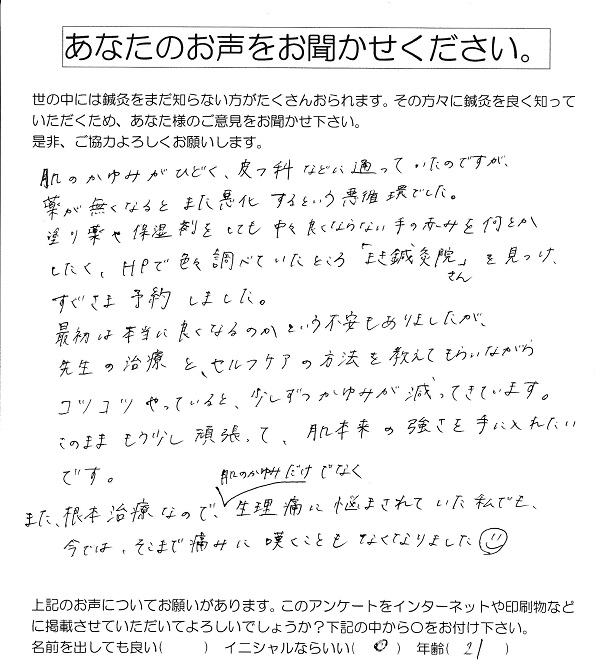 あなたのお声をお聞かせください。
世の中には鍼灸をまだ知らない方がたくさんおられます。その方々に鍼灸を良く知って
いただくため、あなた様のご意見をお聞かせ下さい。
是非、ご協力よろしくお願いします。
肌のかゆみがひどく、皮フ科などに通っていたのですが、
薬が無くなるとまた悪化するという悪循環でした。
塗り薬や保湿剤をしても中々良くならない手の赤みを何とか
したく、HPで色々調べていたところ「まき鍼灸院」を見つけ、
さん
すぐさま予約しました。
最初は本当に良くなるのかという不安もありましたが、
先生の治療と、セルフケアの方法を教えてもらいながら
コツコツやっていると、少しずつかゆみが減ってきています。
このままもう少し頑張って、肌本来の強さを手に入れたい
です。
肌のかゆみだけでなく
また、根本治療なので、生理痛に悩まされていた私でも、
今では、そこまで痛みに嘆くこともなくなりました
上記のお声についてお願いがあります。このアンケートをインターネットや印刷物など
に掲載させていただいてよろしいでしょうか？下記の中から〇をお付け下さい。
名前を出しても良い(　　) イニシャルならいい( 〇 ) 年齢( 21 )